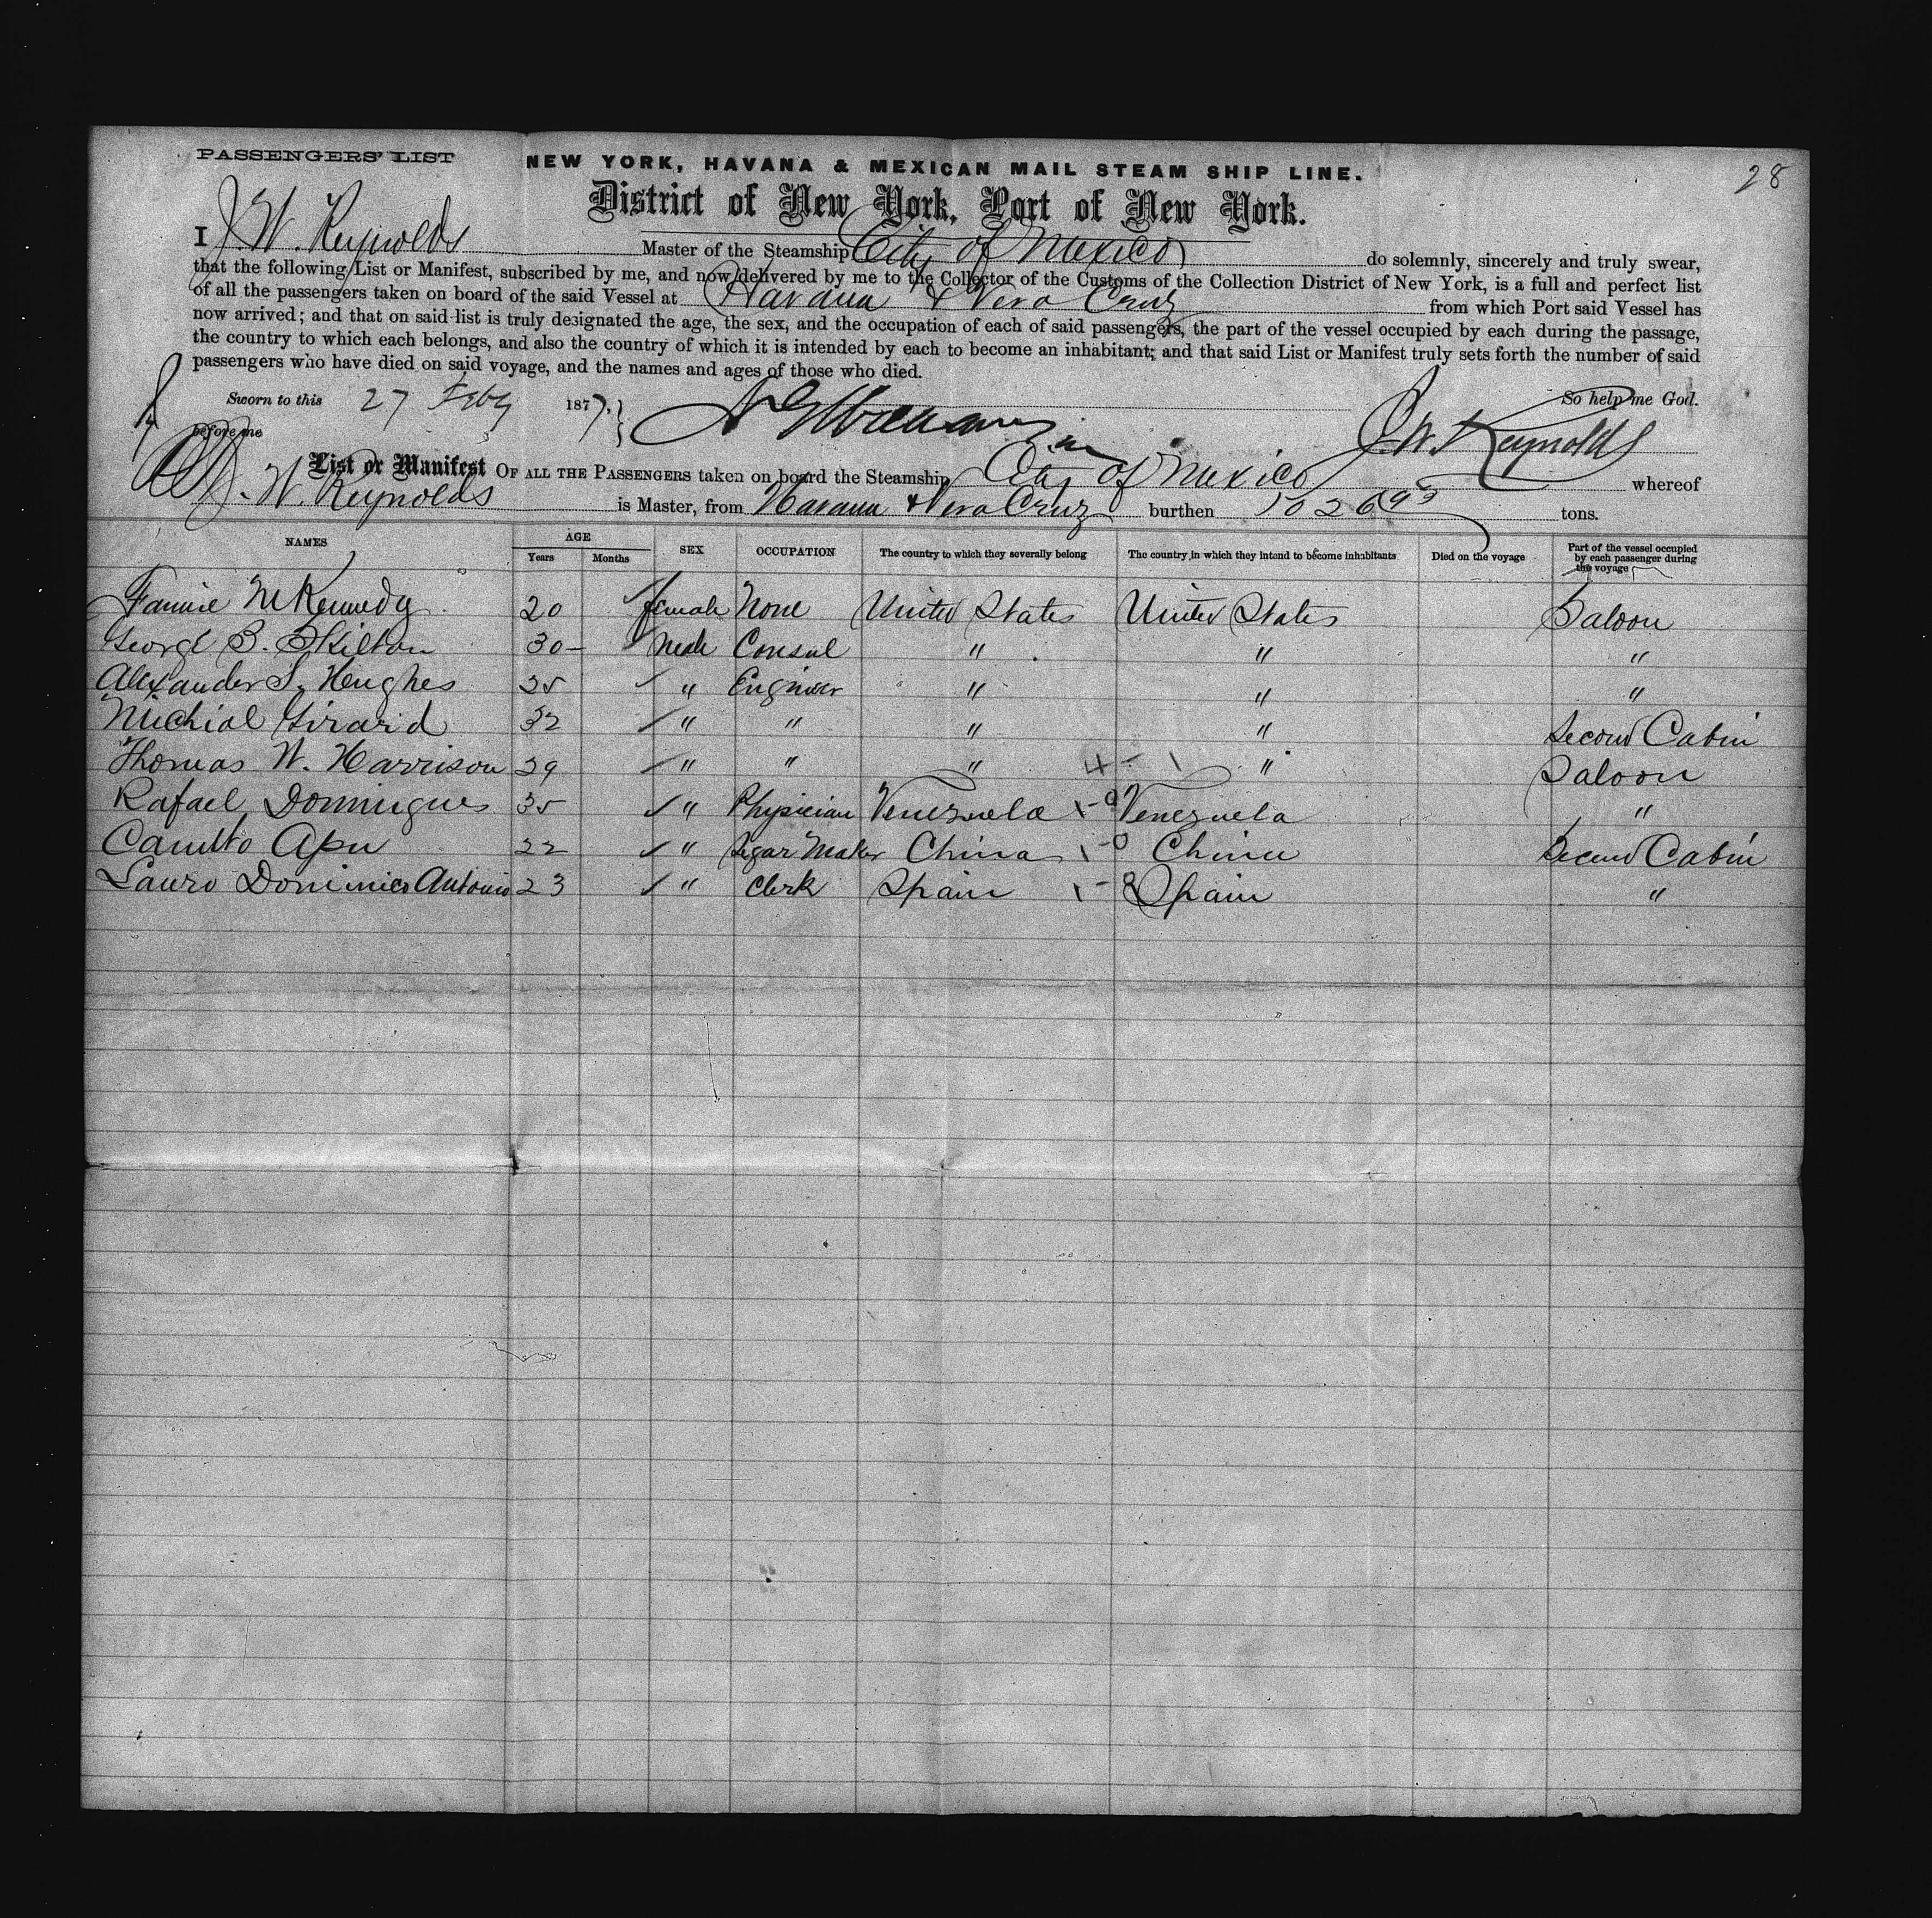 28
PASSENGERS' LIST
NEW YORK, HAVANA & MEXICAN MAIL STEAM SHIP LINE.
District of New York, Port of New York.
I J. W. Reynolds Master of the Steamship City of Mexico do solemnly, sincerely and truly swear,
that the following List or Manifest, subscribed by me, and now delivered by me to the Collector of the Customs of the Collection District of New York, is a full and perfect list
of all the passengers taken on board of the said Vessel at Havana & Vera Cruz from which Port said Vessel has
now arrived; and that on said list is truly designated the age, the sex, and the occupation of each of said passengers, the part of the vessel occupied by each during the passage,
the country to which each belongs, and also the country of which it is intended by each to become an inhabitant; and that said List or Manifest truly sets forth the number of said
passengers who have died on said voyage, and the names and ages of those who died.
Sworn to this 27 Feby 1877, So help me God.
before me J. W. Reynolds
List or Manifest OF ALL THE PASSENGERS taken on board the Steamship City of Mexico whereof
J. W. Reynolds is Master, from Havana & Vera Cruz burthen 1026 93 tons.
NAMES AGE Years Months SEX OCCUPATION The country to which they severally belong The country in which they intend to become inhabitants Died on the voyage Part of the vessel occupied by each passenger during the voyage
Fannie McKennedy 20 female None United States United States Saloon
George B. Skilton 30 Male Consul " " "
Alexander S. Hughes 25 " Engineer " " "
Michial Girard 32 " " " " Second Cabin
Thomas W. Harrison 29 " " " 4-1 " Saloon
Rafael Domingues 35 " Physician Venezuela 1-0 Venezuela "
Canutto Apu 22 " Segar Maker China 1-0 China Second Cabin
Lauro Dominico Antonio 23 " Clerk Spain 1-0 Spain "